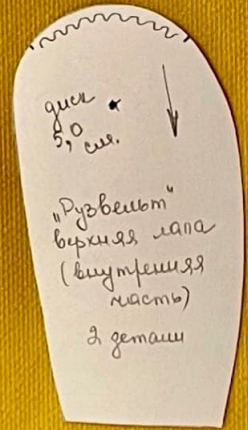 диск
5,0 см.
„Рузвельт"
верхняя лапа
(внутренняя
часть)
2 детали